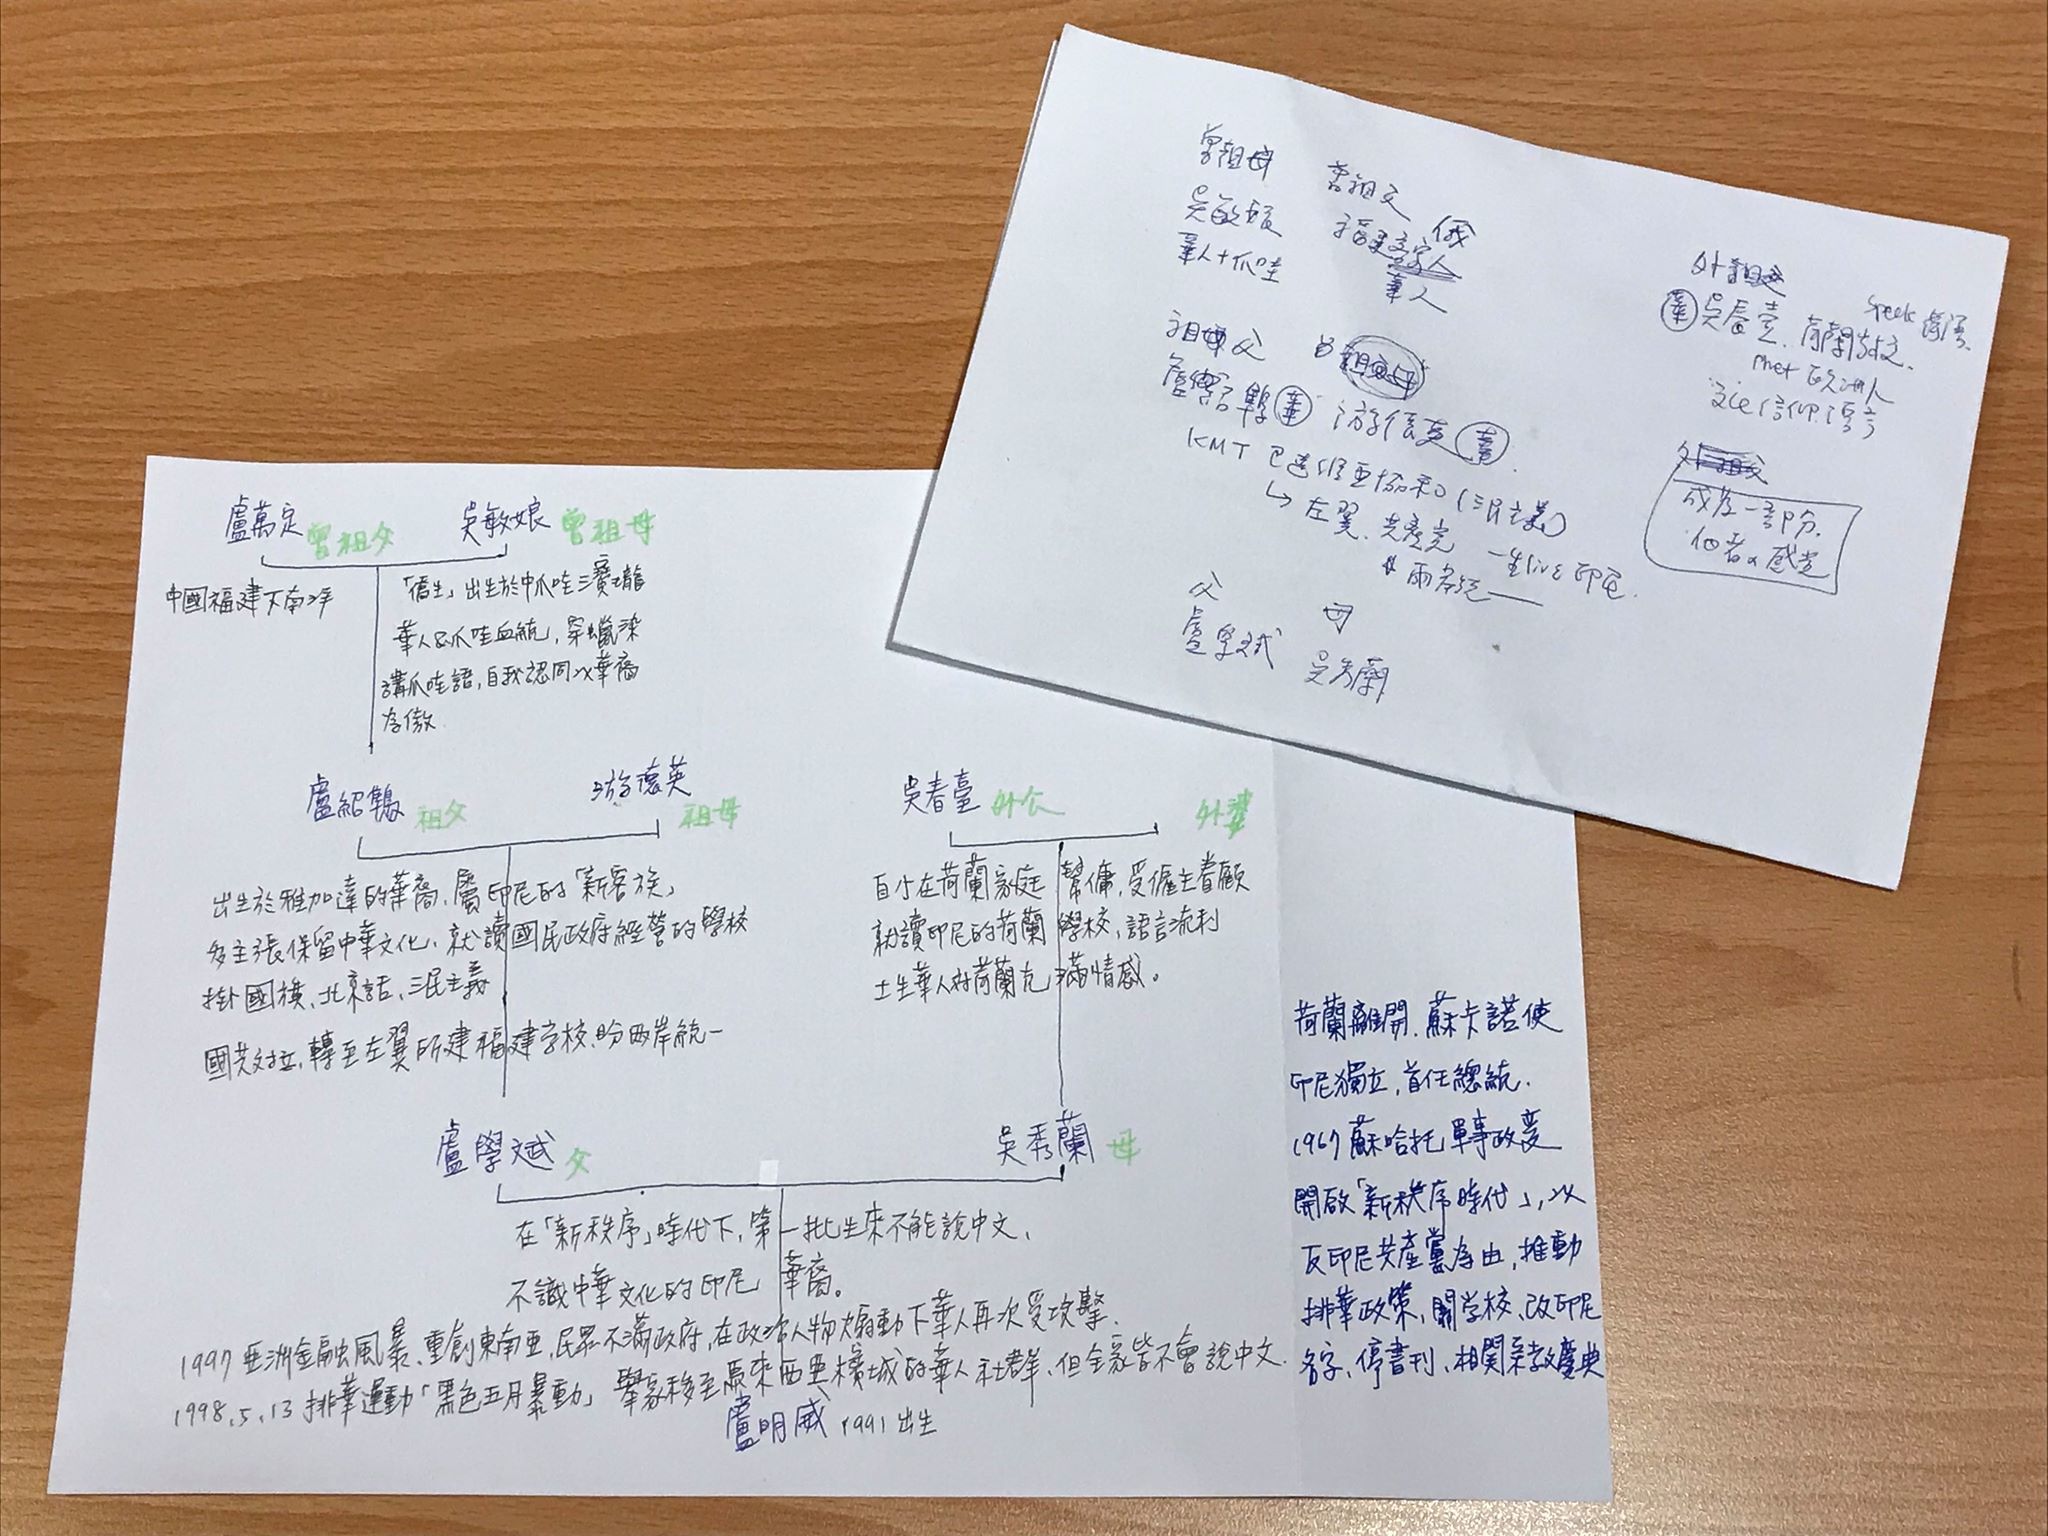 盧萬定 曾祖父 吳敏娘 曾祖母
中國福建下南洋
「僑生」出生於中爪哇三寶瓏
華人&爪哇血統，穿蠟染
講爪哇語，自我認同以華裔
為傲
盧紹 祖父 游德英 祖母
出生於雅加達的華裔、屬印尼的「新客族」
多主張保留中華文化、就讀國民政府經營的學校
掛國旗、北京話、三民主義
國共對立，轉至左翼所建福建学校、盼兩岸統一
吳春臺 外公 外婆
自小在荷蘭家庭幫傭，受僱主眷顧
就讀印尼的荷蘭學校，語言流利
土生華人對荷蘭充滿情感。
盧學斌 父 吳秀蘭 母
在「新秩序」時代下，第一批生來不能說中文、
不識中華文化的印尼華裔。
1997 亞洲金融風暴、重創東南亞，民眾不滿政府，在政治人物煽動下華人再次受攻擊．
1998.5.13 排華運動「黑色五月暴動」 舉家移至馬來西亞檳城的華人社群，但全家皆不會說中文．
盧明威 1991出生
荷蘭離開．蘇卡諾使
印尼獨立，首任總統．
1967 蘇哈托軍事政變
開啟「新秩序時代」，以
反印尼共產黨為由，推動
排華政策，關学校、改印尼
名字、停書刊、相關宗教慶典
曾祖母 曾祖父
吳敏娘 福建 客家人
華人+爪哇 華人
祖父
盧紹 華 游德英
KMT 巴達維亞協和（三民主義）
↳ 左翼．共產党 一生live 印尼．
父 母
盧學斌 吳秀蘭
外祖父
華 吳春臺．荷蘭教 speak 荷語．
歐洲人
成為一部分．